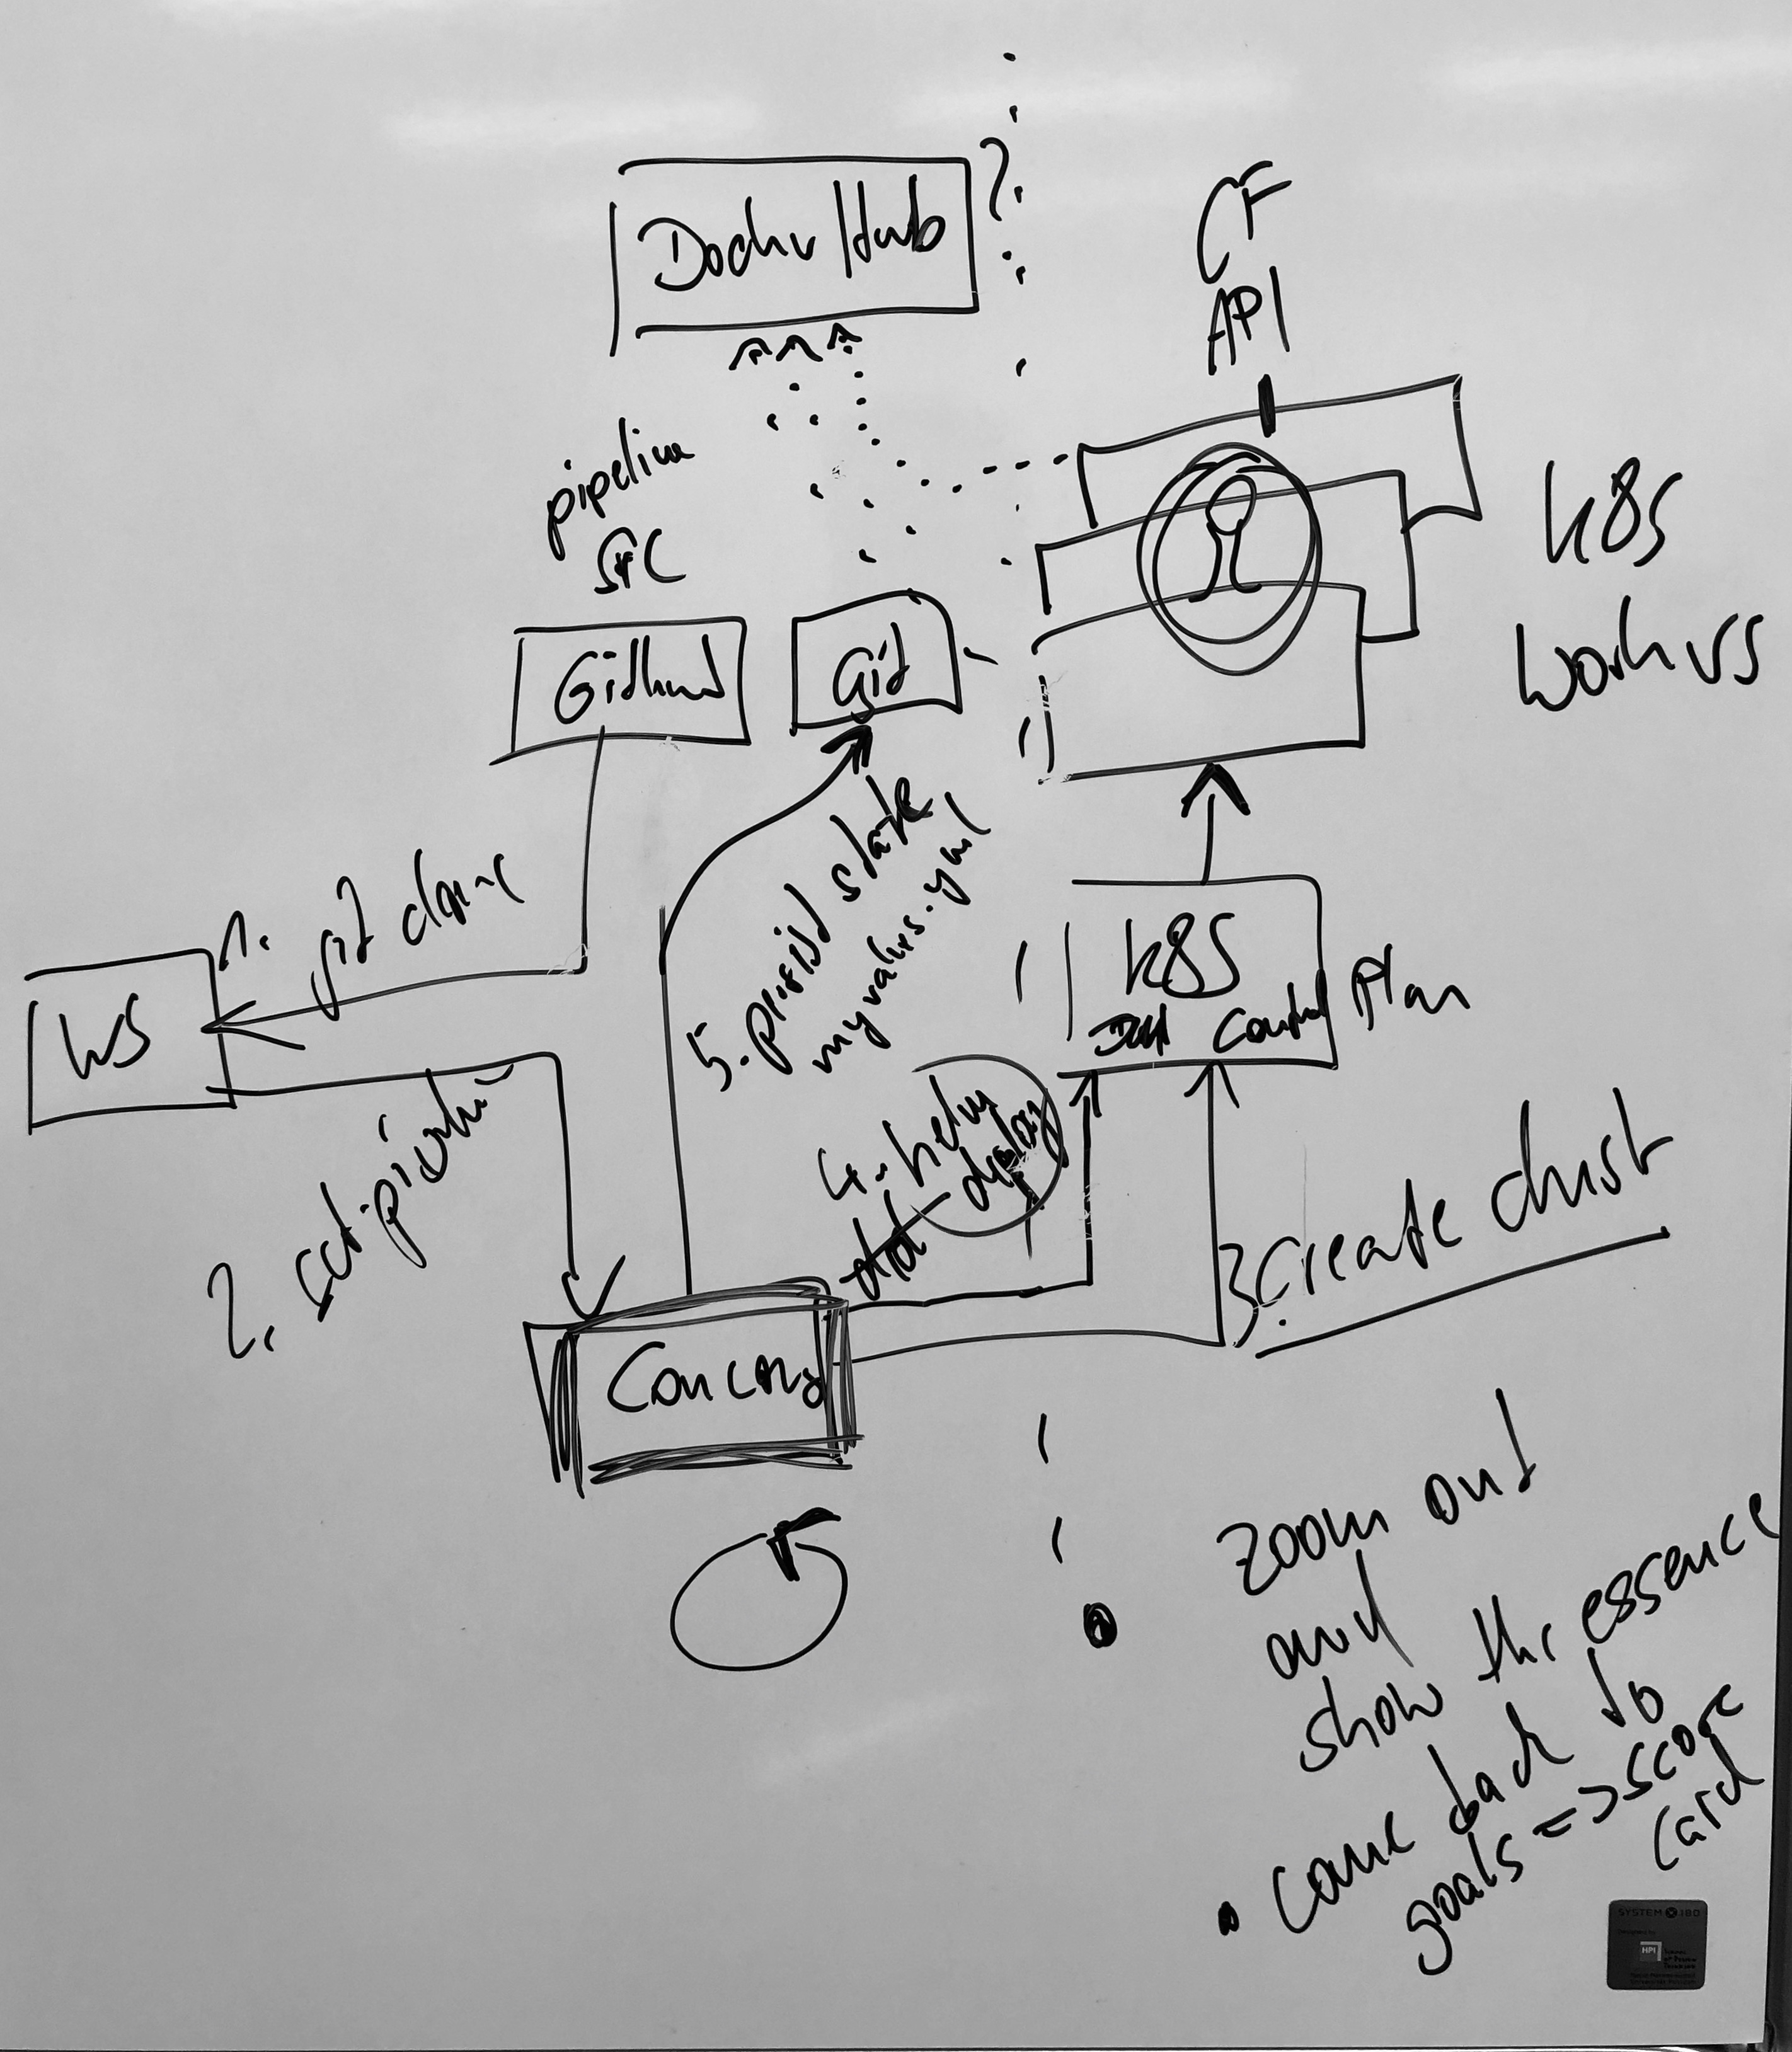 Docker Hub
?
CF
API
pipeline
src
Github
Git
K8S
Workers
1.
git clone
WS
5. persist state
myvalues.yml
K8S
Control Plan
2. set-pipeline
4. helm
deploy
3. Create clust
Concourse
Zoom out
and
show the essence
• Come back to
goals => score
card
SYSTEM 180
HPI